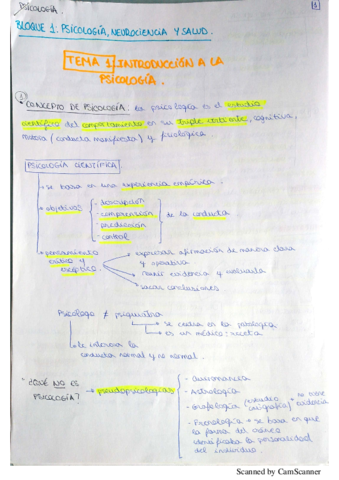 PSICOLOGÍA. 1
BLOQUE 1: PSICOLOGÍA, NEUROCIENCIA Y SALUD.
TEMA 1: INTRODUCCIÓN A LA
PSICOLOGÍA.
1
CONCEPTO DE PSICOLOGÍA: la psicología es el estudio
científico del comportamiento en su triple vertiente, cognitiva,
motora (conducta manifiesta) y fisiológica
PSICOLOGÍA CIENTÍFICA
se basa en una experiencia empírica.
objetivos
- descripción
- comprensión
- predicción
- control
de la conducta
pensamiento
crítico y
escéptico
expresar afirmación de manera clara
y operativa
reunir evidencia y evaluarla
sacar conclusiones.
Psicólogo ≠ psiquiatra
se centra en la patología
es un médico: receta
le interesa la
conducta normal y no normal.
¿QUÉ NO ES
PSICOLOGÍA?
pseudopsicologías
- Quiromancia
- Astrología
- Grafología (estudio caligrafía) + no tiene evidencia
- Frenología → se basa en que
la forma del cráneo
identificaba la personalidad
del individuo.
Scanned by CamScanner